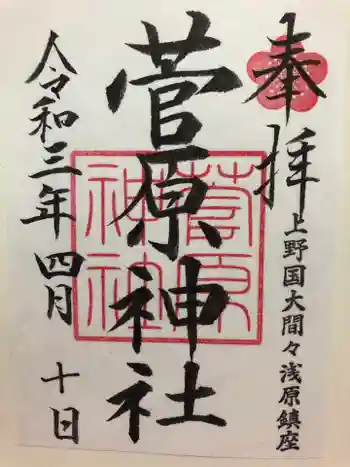 奉拝
上野国大間々浅原鎮座
菅原神社
令和三年四月十日
菅原神社